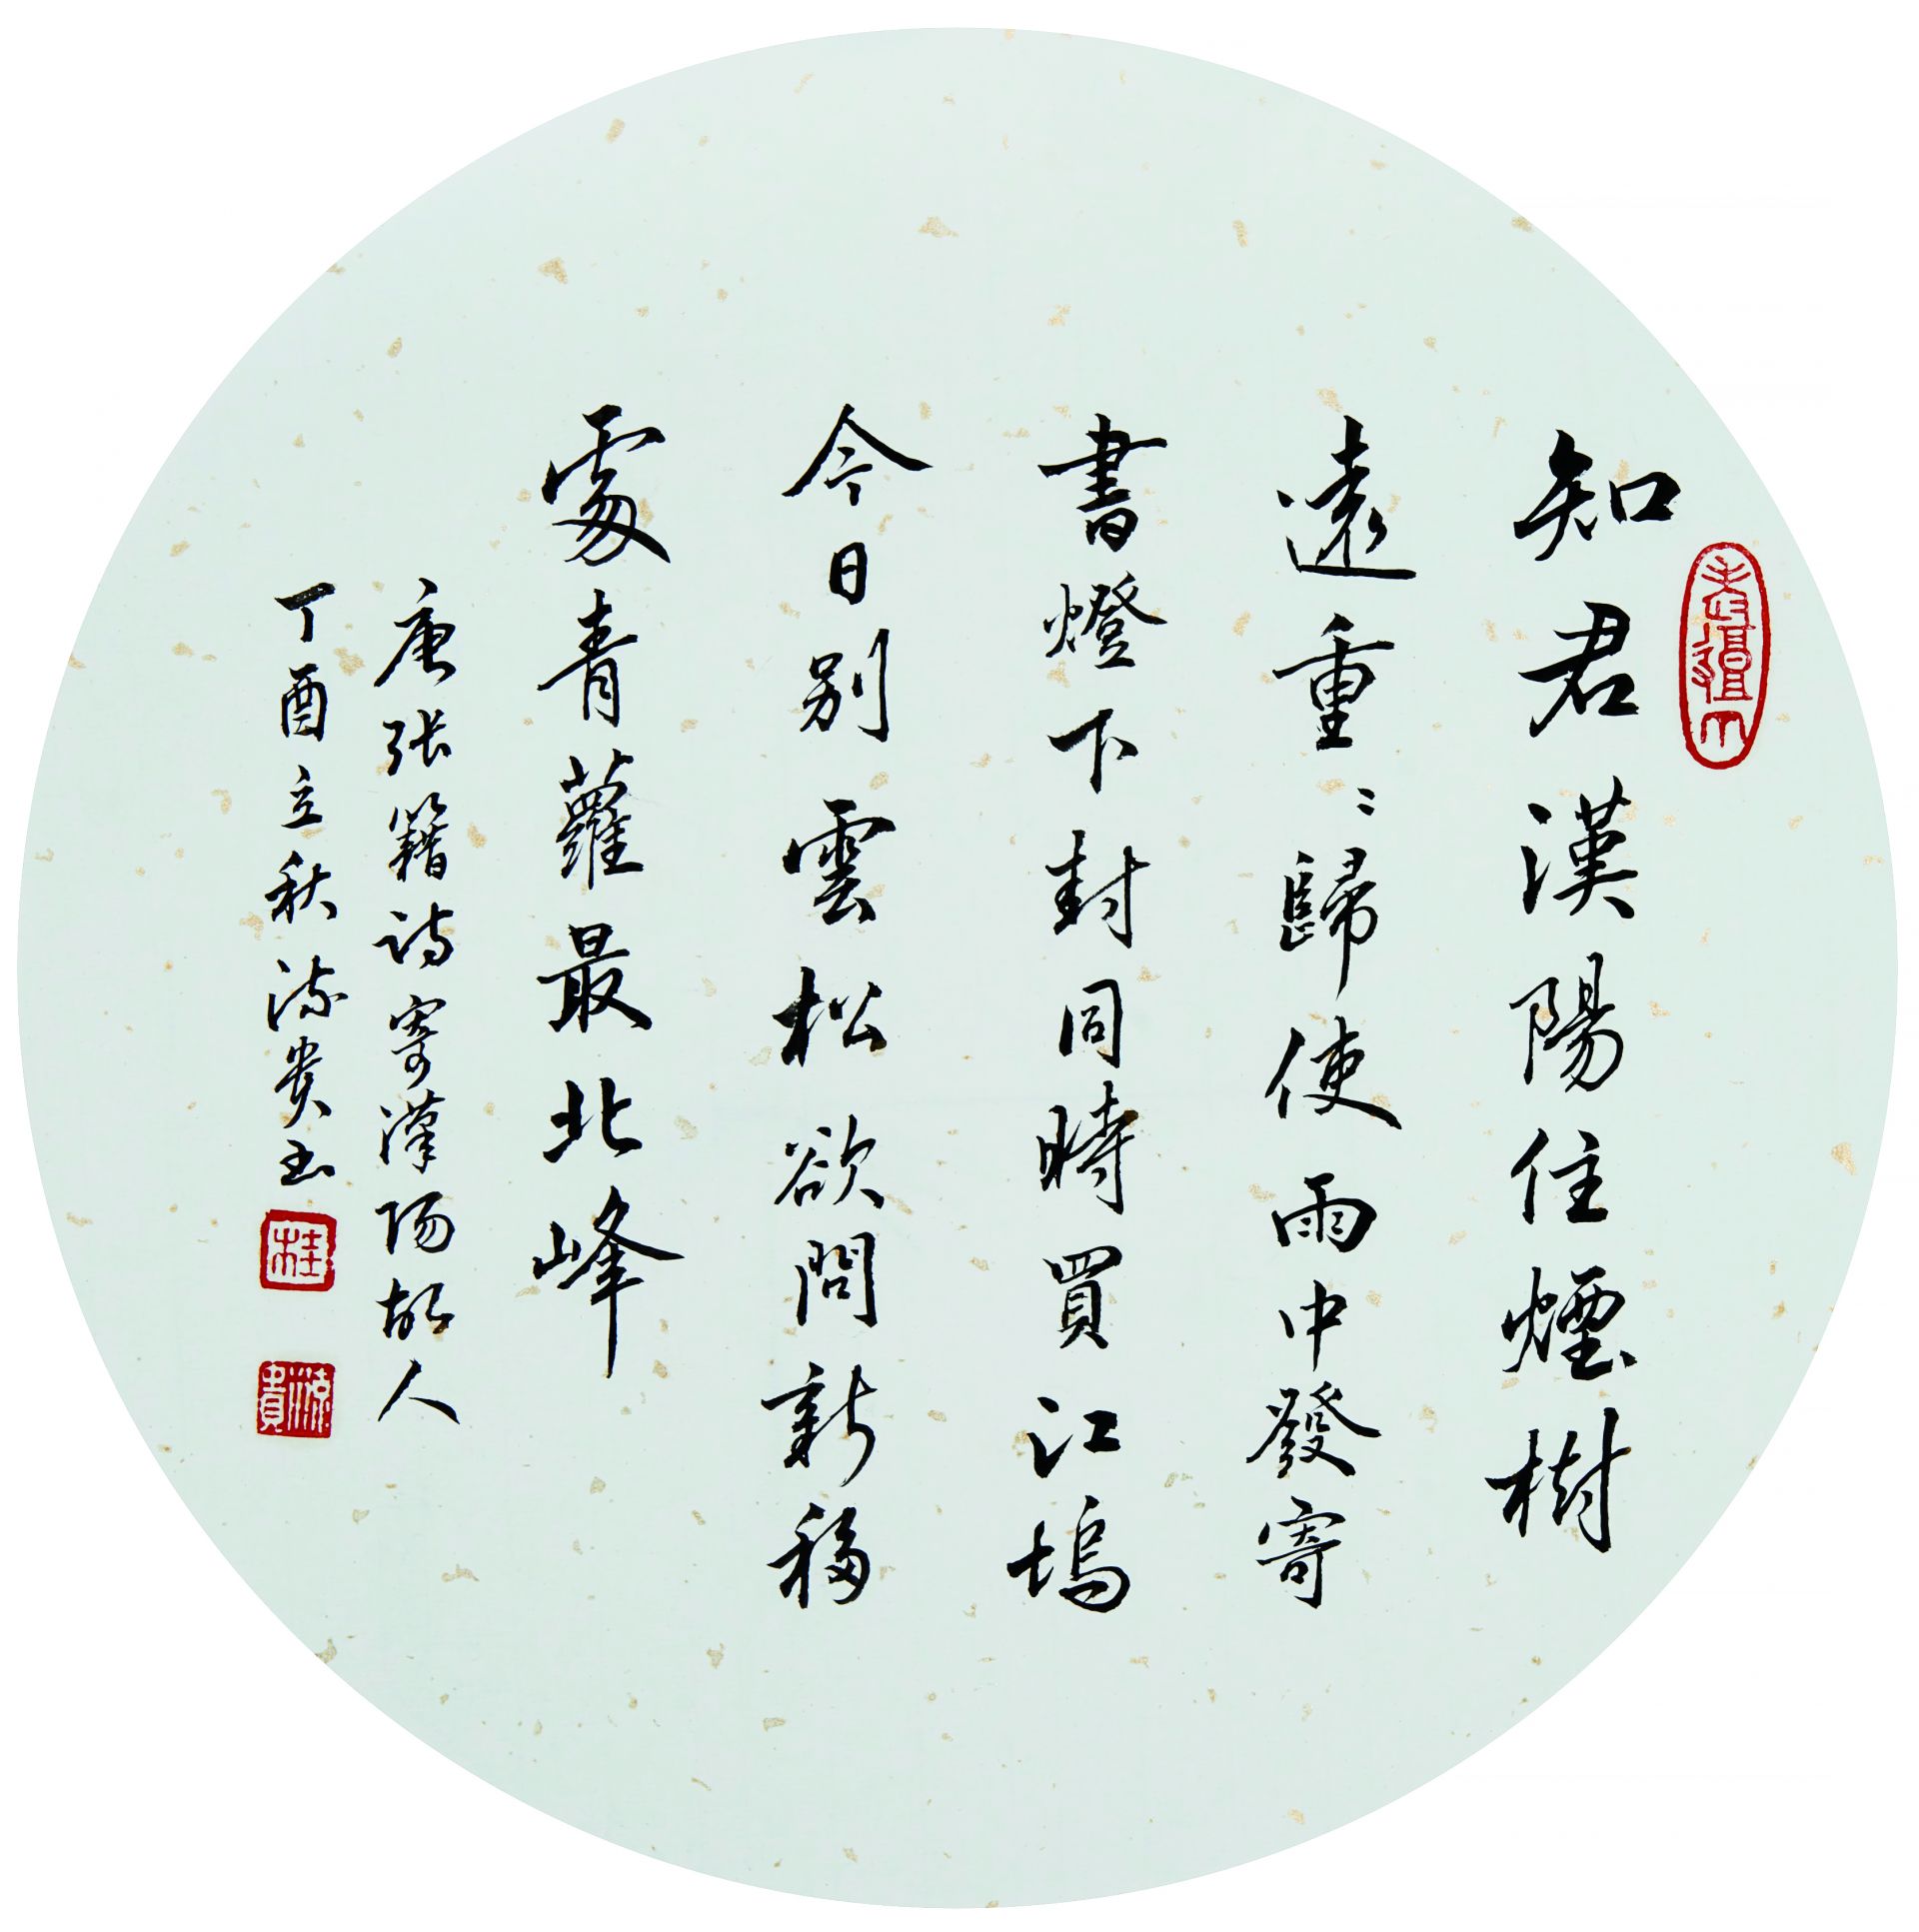 知君漢陽住煙樹
遠重〻歸使雨中發寄
書燈下封同時買江塢
今日別雲松欲問新移
處青蘿最北峰
唐张籍诗寄漢陽故人
丁酉立秋流贵书
桂
流貴